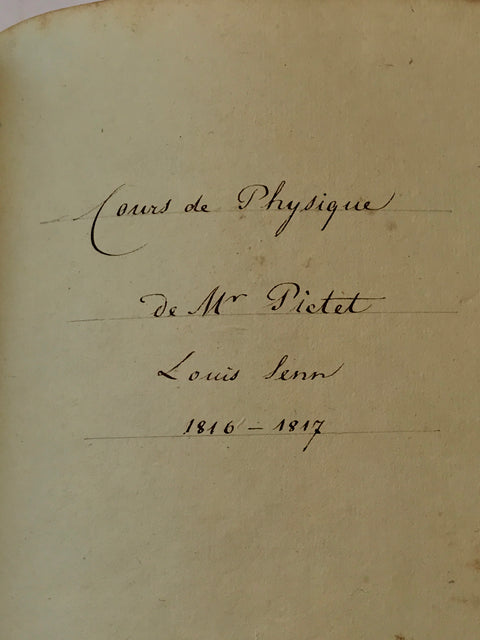 Cours de Physique
de Mr Pictet
Louis Senn
1816 - 1817